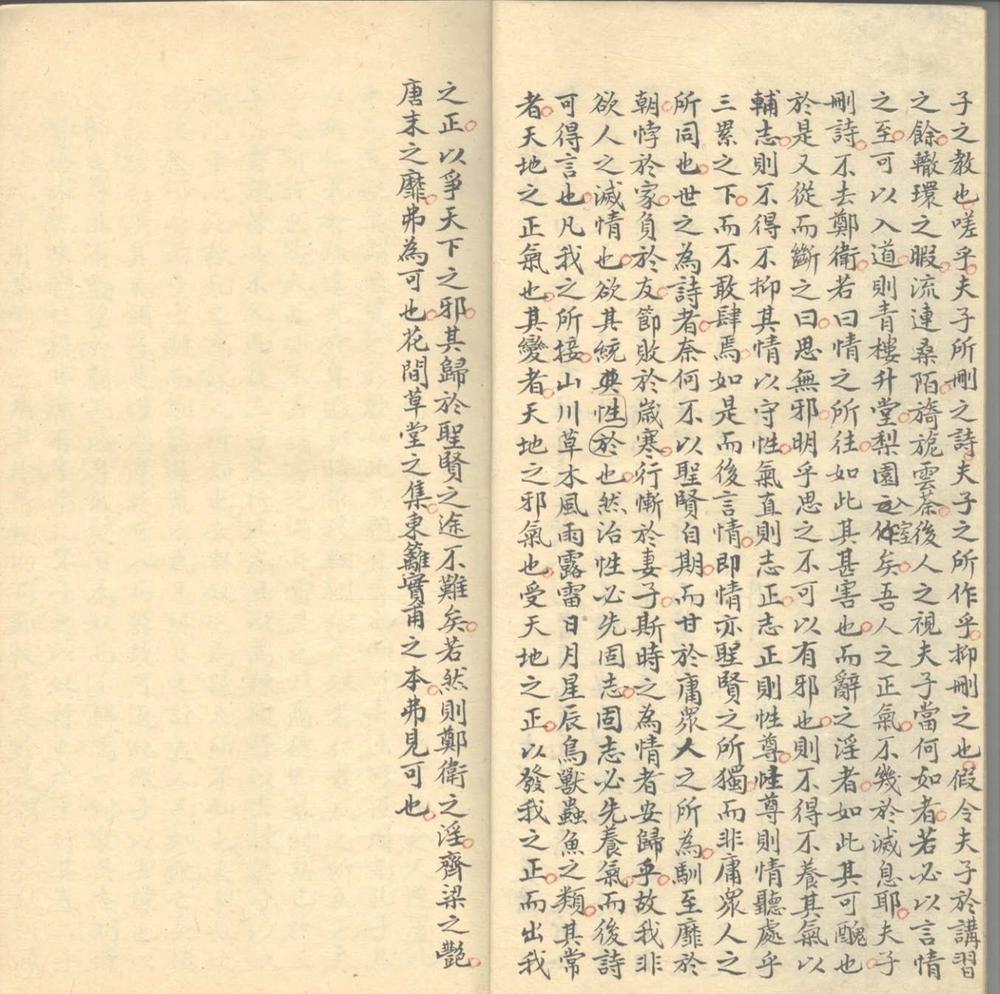 子之教也嗟乎夫子所刪之詩夫子之所作乎抑刪之也假令夫子於講習
之餘轍環之暇流連桑陌旖旎雲荼後人之視夫子當何如者若必以言情
之至可以入道則青樓升堂梨園入室矣吾人之正氣不幾於滅息耶夫子
刪詩不去鄭衛若曰情之所往如此其甚害也而辭之淫者如此其可醜也
於是又從而斷之曰思無邪明乎思之不可以有邪也則不得不養其氣以
輔志則不得不抑其情以守性氣直則志正志正則性尊性尊則情聽處乎
三累之下而不敢肆焉如是而後言情即情亦聖賢之所獨而非庸眾人之
所同也世之為詩者奈何不以聖賢自期而甘於庸眾人之所為馴至靡於
朝悖於家負於友節敗於歲寒行慚於妻子斯時之為情者安歸乎故我非
欲人之滅情也欲其統與性於也然治性必先固志固志必先養氣而後詩
可得言也凡我之所接山川草木風雨露雷日月星辰鳥獸蟲魚之類其常
者天地之正氣也其變者天地之邪氣也受天地之正以發我之正而出我
之正以爭天下之邪其歸於聖賢之途不難矣若然則鄭衛之淫齊梁之艷
唐末之靡弗為可也花間草堂之集東籬實甫之本弗見可也